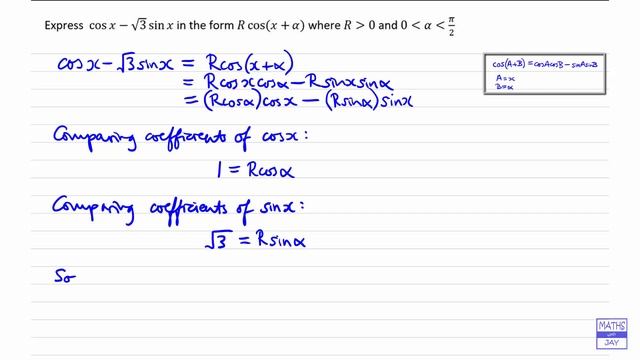 Express cos x − √3 sin x in the form R cos(x + α) where R > 0 and 0 < α < π/2
cos x − √3 sin x = R cos(x + α)
= R cos x cos α − R sin x sin α
= (R cos α) cos x − (R sin α) sin x
cos(A+B) = cosAcosB − sinAsinB
A = x
B = α
Comparing coefficients of cos x :
1 = R cos α
Comparing coefficients of sin x :
√3 = R sin α
So
MATHS
WITH
JAY